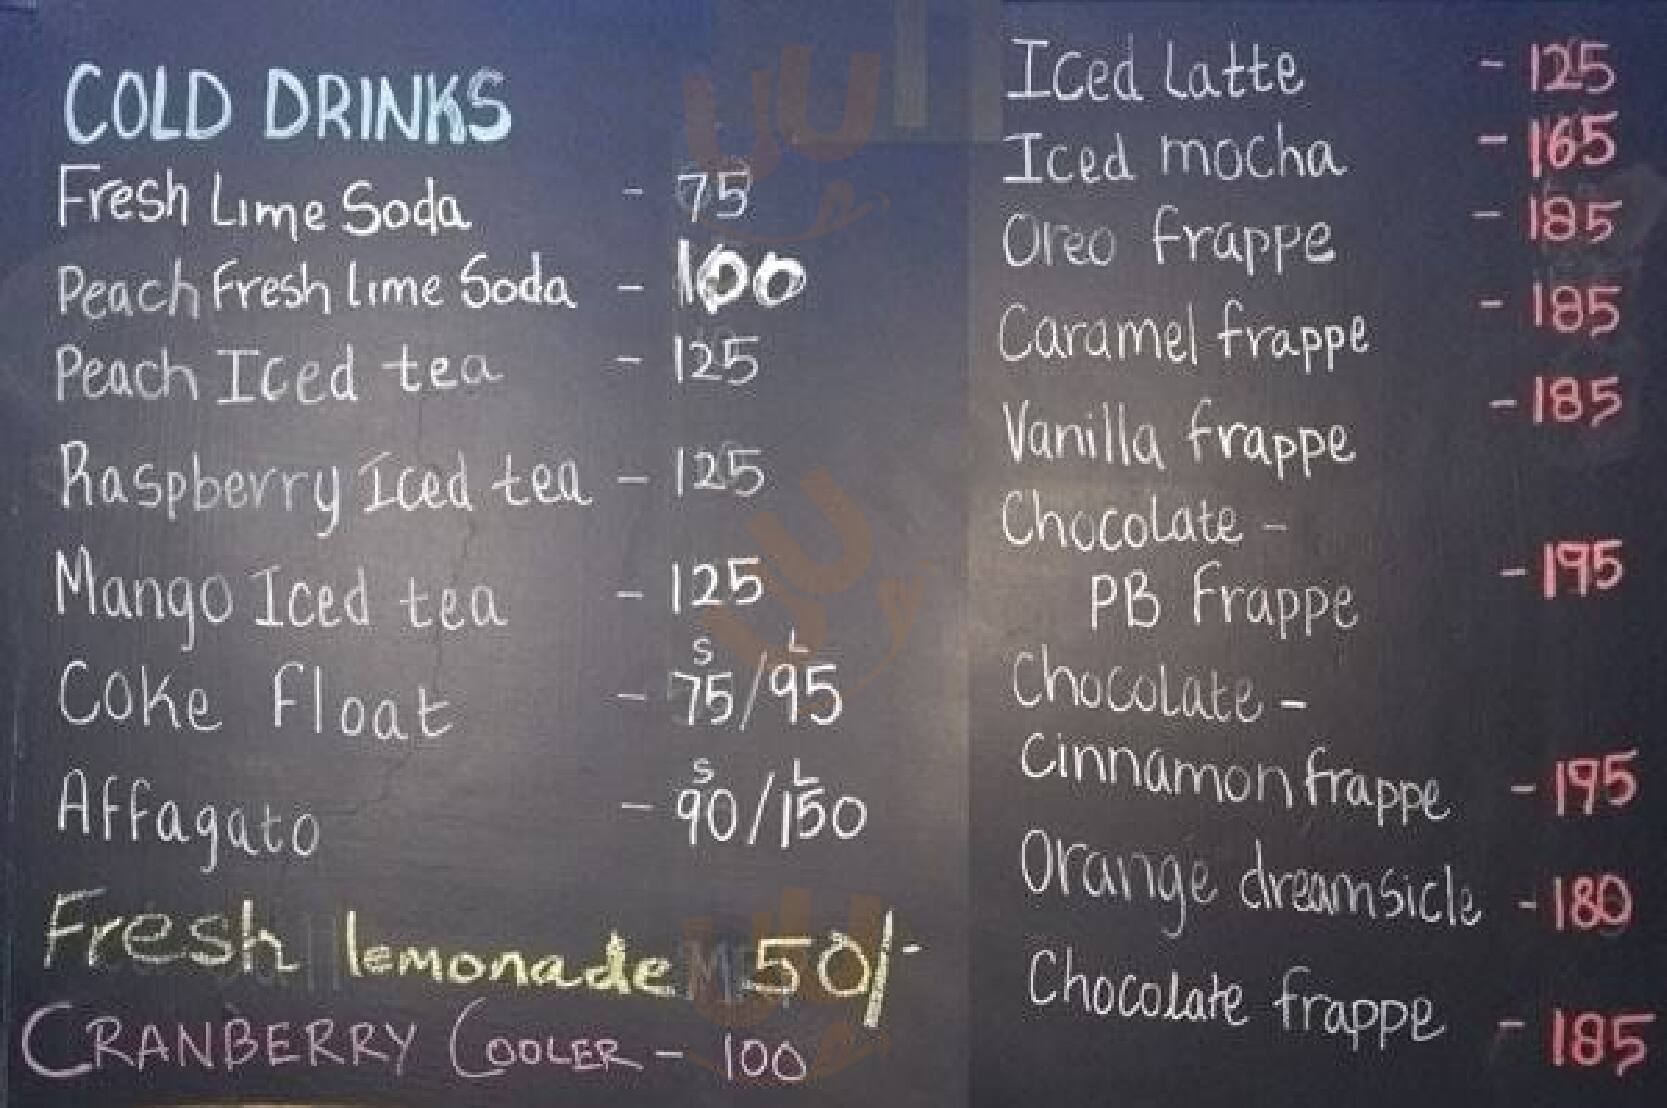 COLD DRINKS
Fresh Lime Soda - 75
Peach Fresh lime Soda - 100
Peach Iced tea - 125
Raspberry Iced tea - 125
Mango Iced tea - 125
S L
Coke float - 75/95
S L
Affagato - 90/150
Fresh lemonade 50/-
CRANBERRY COOLER - 100
Iced Latte - 125
Iced mocha - 165
Oreo frappe - 185
Caramel frappe - 185
Vanilla frappe - 185
Chocolate -
PB Frappe - 195
Chocolate -
Cinnamon frappe - 195
Orange dreamsicle - 180
Chocolate frappe - 185